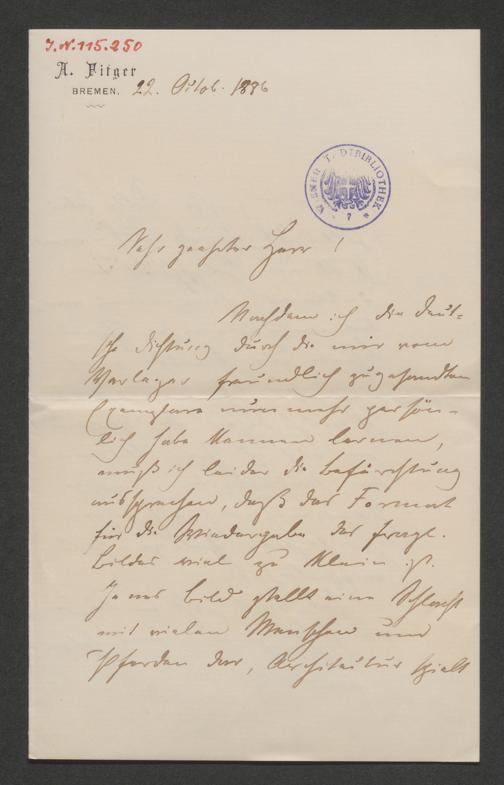 J.N. 115.250
A. Fitger
BREMEN. 22. Octob. 1886
WIENER STADTBIBLIOTHEK
Sehr geehrter Herr!
Nachdem ich die deut-
sche Dichtung durch die mir vom
Verleger freundlich zugesandten
Exemplare nunmehr persön-
lich habe kennen lernen,
muß ich leider die Befürchtung
aussprechen, daß das Format
für die Wiedergabe des fragl.
Bildes viel zu klein ist.
Jenes Bild stellt eine Schlacht
mit vielen Menschen und
Pferden dar, Architectur spielt